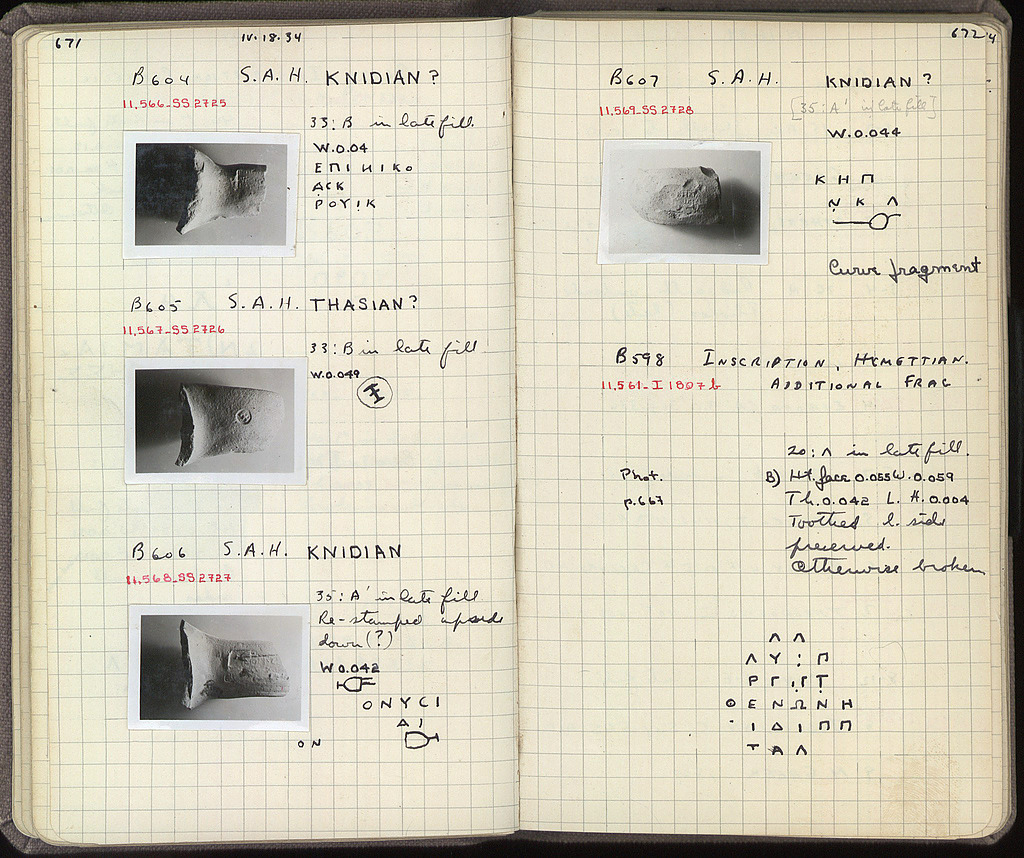 671
IV.18.34
B604 S.A.H. KNIDIAN?
11.566-SS 2725
33:B in late fill.
W.0.04
ΕΠΙΝΙΚΟ
ΑΣΚ
ΡΟΥΙΚ
B605 S.A.H. THASIAN?
11.567-SS 2726
33:B in late fill
W.0.049
B606 S.A.H. KNIDIAN
11.568-SS 2727
35:A' in late fill
Re-stamped upside
down(?)
W 0.042
ΟΝΥCΙ
ΔΙ
ΟΝ
672
B607 S.A.H. KNIDIAN?
11.569-SS 2728
[35:A' in late fill]
W.0.044
Κ Η Π
Ν Κ Λ
Curve fragment
B598 INSCRIPTION, HYMETTIAN.
11.561-I 1807b
ADDITIONAL FRAG
20:Λ in late fill.
Phot.
p.667
B) Ht. face 0.055 W.0.059
Th.0.042 L.H.0.004
Toothed l. side
preserved.
Otherwise broken
Λ Λ
Λ Υ : Π
Ρ Γ Ι Γ Τ
Θ Ε Ν Ω Ν Η
Ι Δ Ι Π Π
Τ Α Λ